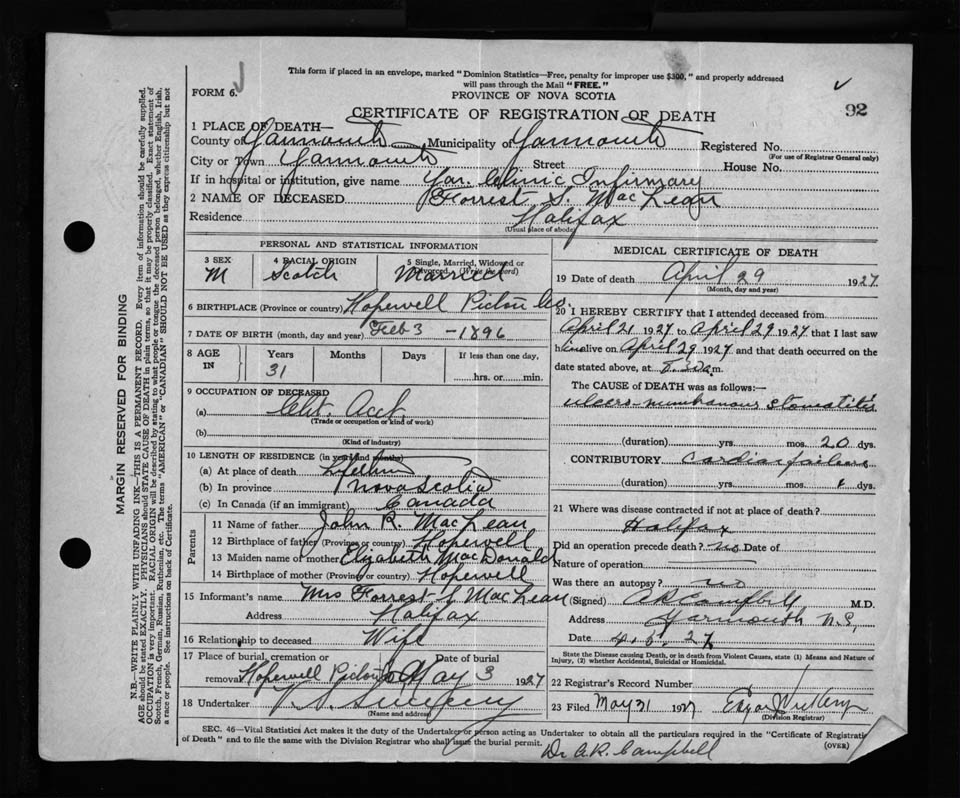 This form if placed in an envelope, marked "Dominion Statistics—Free, penalty for improper use $300," and properly addressed
will pass through the Mail "FREE."
FORM 6.
PROVINCE OF NOVA SCOTIA
92
CERTIFICATE OF REGISTRATION OF DEATH
1 PLACE OF DEATH—
County of Yarmouth Municipality of Yarmouth Registered No.
(For use of Registrar General only)
City or Town Yarmouth Street House No.
If in hospital or institution, give name Yar. Clinic Infirmary
2 NAME OF DECEASED Forrest S. MacLean
Residence Halifax
(Usual place of abode)
PERSONAL AND STATISTICAL INFORMATION
3 SEX 4 RACIAL ORIGIN 5 Single, Married, Widowed or Divorced (Write the word)
M Scotch Married
6 BIRTHPLACE (Province or country) Hopewell Pictou Co.
7 DATE OF BIRTH (month, day and year) Feb 3 - 1896
8 AGE IN Years Months Days If less than one day,
31 hrs. or min.
9 OCCUPATION OF DECEASED
(a) Cht. Acct.
(Trade or occupation or kind of work)
(b)
(Kind of industry)
10 LENGTH OF RESIDENCE (in years and months)
(a) At place of death Lifetime
(b) In province Nova Scotia
(c) In Canada (if an immigrant) Canada
Parents
11 Name of father John R. MacLean
12 Birthplace of father (Province or country) Hopewell
13 Maiden name of mother Elizabeth MacDonald
14 Birthplace of mother (Province or country) Hopewell
15 Informant's name Mrs Forrest S MacLean
Address Halifax
16 Relationship to deceased Wife
17 Place of burial, cremation or Date of burial
removal Hopewell Pictou Co May 3 1927
18 Undertaker
(Name and address)
MEDICAL CERTIFICATE OF DEATH
19 Date of death April 29 1927
(Month, day and year)
20 I HEREBY CERTIFY that I attended deceased from
April 21 1927 to April 29 1927 that I last saw
him alive on April 29 1927 and that death occurred on the
date stated above, at m.
The CAUSE of DEATH was as follows:—
ulcero-membranous stomatitis
(duration) yrs. mos. 20 dys.
CONTRIBUTORY Cardiac failure
(duration) yrs. mos. dys.
21 Where was disease contracted if not at place of death?
Halifax
Did an operation precede death? no Date of
Nature of operation
Was there an autopsy? no
(Signed) A R Campbell M.D.
Address Yarmouth N.S.
Date 27
State the Disease causing Death, or in death from Violent Causes, state (1) Means and Nature of
Injury, (2) whether Accidental, Suicidal or Homicidal.
22 Registrar's Record Number
23 Filed May 31 1927
(Division Registrar)
SEC. 46—Vital Statistics Act makes it the duty of the Undertaker or person acting as Undertaker to obtain all the particulars required in the "Certificate of Registration
of Death" and to file the same with the Division Registrar who shall issue the burial permit.
(OVER)
Dr A.R. Campbell
MARGIN RESERVED FOR BINDING
N.B.—WRITE PLAINLY WITH UNFADING INK—THIS IS A PERMANENT RECORD. Every item of information should be carefully supplied.
AGE should be stated EXACTLY. PHYSICIANS should STATE CAUSE OF DEATH in plain terms, so that it may be properly classified. Exact statement of
OCCUPATION is very important. RACIAL ORIGIN will be described by stating to what people or tongue the deceased person belonged, whether English, Irish,
Scotch, French, German, Russian, Ruthenian, etc. The terms "AMERICAN" or "CANADIAN" SHOULD NOT BE USED as they express citizenship but not
a race or people. See instructions on back of Certificate.